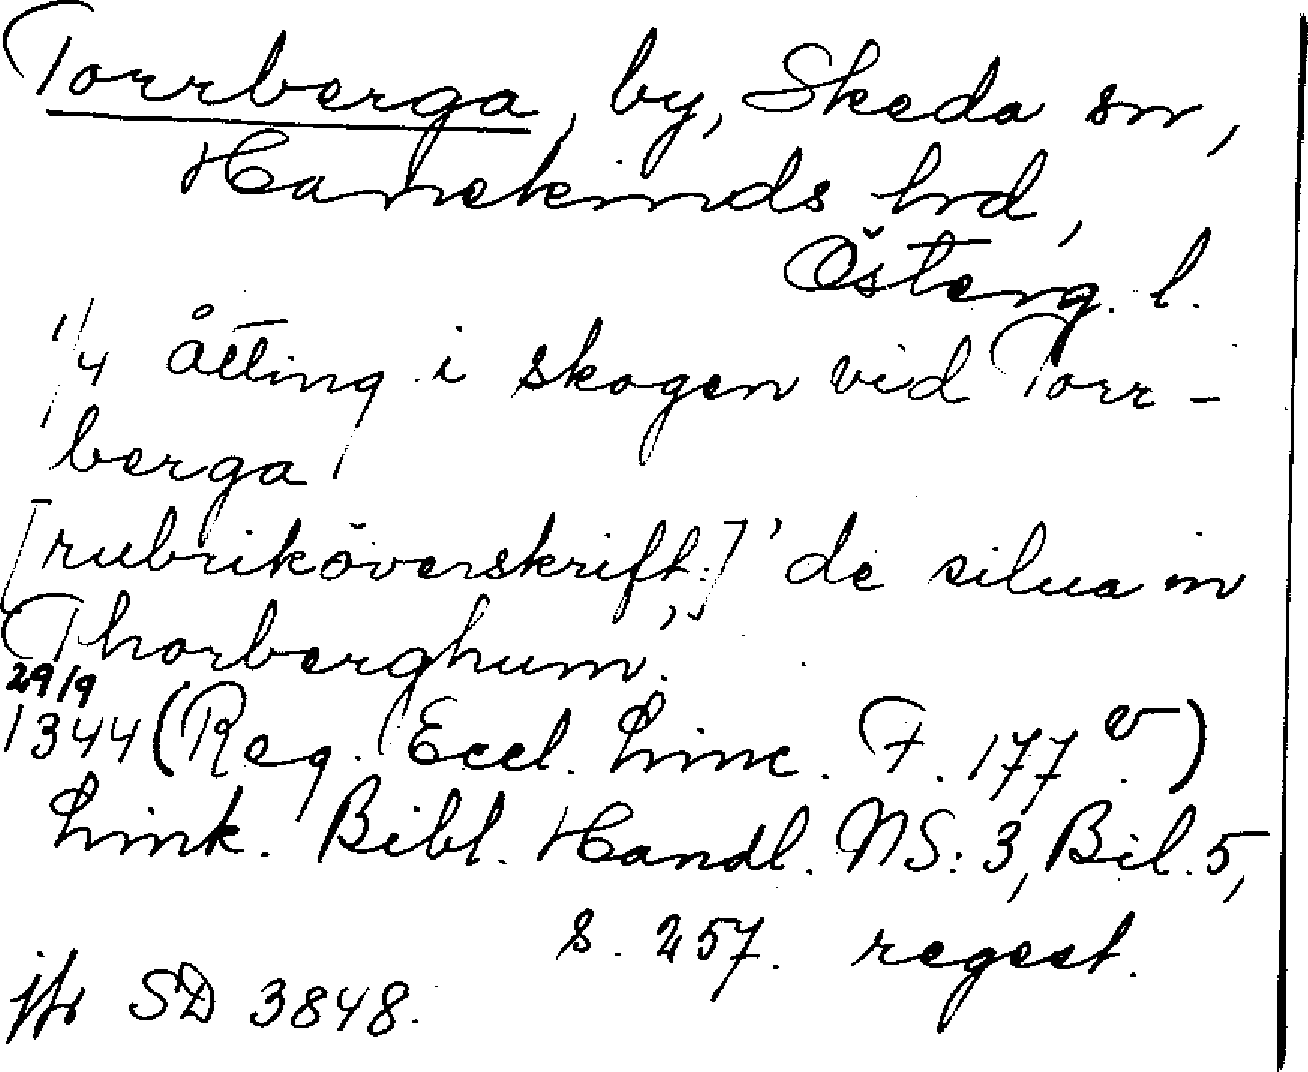 Torrberga, by, Skeda sn,
Hanekinds hrd,
Österg. l.
1/4 åtting i skogen vid Torr-
berga
[rubriköverskrift:] 'de silua in
Thorberghum'.
29/9
1344 (Reg. Eccl. Linc. F. 177 v.)
Link. Bibl. Handl. NS: 3, Bil. 5,
s. 257. regest.
jfr SD 3848.